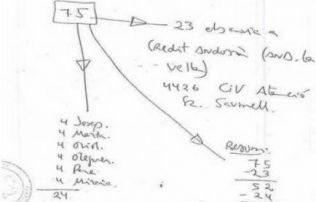 75
23
Credit Andorrà (AND. la
Vella)
4426 CIV
4 Josep.
4 Marta.
4 Oriol.
4 Oleguer.
4 Pere
4 Mireia.
24
Resum:
75
-23
52
-24